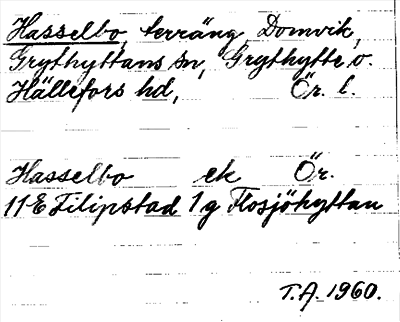 Hasselbo, terräng, Domvik,
Grythyttans sn, Grythytte o.
Hällefors hd, Ör. l.
Hasselbo ek Ör.
11E Filipstad 1g Flosjöhyttan
T.A. 1960.